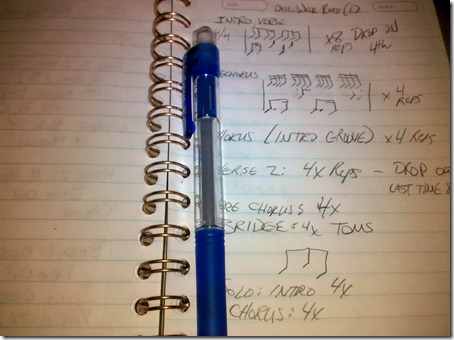 ONE WAY
INTRO VERSE
4/4 x8 DROP ON
REPS 4th
ECHORUS
x 4
REPS
HORUS (INTRO GROOVE) x4 REPS
VERSE 2: 4x Reps - DROP
LAST TIME
PRE CHORUS: 4x
BRIDGE: 4x TOMS
SOLO: INTRO 4x
CHORUS: 4x